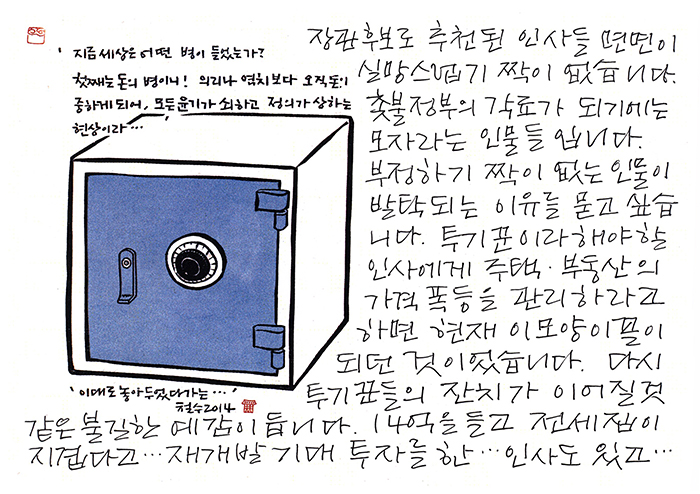 ' 지금 세상은 어떤 병이 들었는가?
첫째는 돈의 병이니! 의리나 염치보다 오직 돈이
중하게 되어, 모든 윤기가 쇠하고 정의가 상하는
현상이라…'
장관후보로 추천된 인사들 면면이
실망스럽기 짝이 없습니다.
촛불정부의 각료가 되기에는
모자라는 인물들 입니다.
부정하기 짝이 없는 인물이
발탁되는 이유를 묻고 싶습
니다. 투기꾼이라해야할
인사에게 주택·부동산의
가격 폭등을 관리하라고
하면 현재 이모양이꼴이
되던 것이었습니다. 다시
투기꾼들의 잔치가 이어질것
같은 불길한 예감이 듭니다. 14억을 들고 전세집이
지겹다고… 재개발 기대 투자를 한… 인사도 있고…
' 이대로 놓아두었다가는…'
철수2014